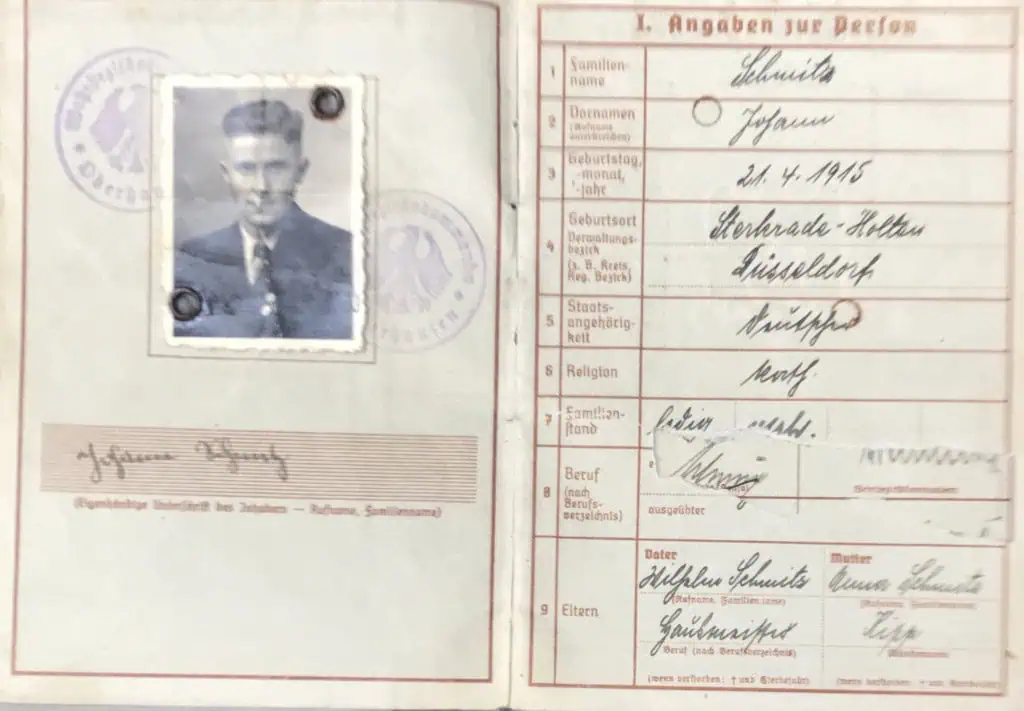 Oberhausen
Johann Schmitz
(Eigenhändige Unterschrift des Inhabers — Rufname, Familienname)
I. Angaben zur Person
1 Familien-
name Schmitz
2 Vornamen
(Rufname
unterstreichen) Johann
3 Geburtstag,
-monat,
-jahr 21. 4. 1915
4 Geburtsort
Verwaltungs-
bezirk
(z. B. Kreis,
Reg. Bezirk) Sterkrade-Holten
Düsseldorf
5 Staats-
angehörig-
keit Deutscher
6 Religion kath.
7 Familien-
stand ledig
8 Beruf
(nach
Berufs-
verzeichnis)
ausgeübter
9 Eltern
Vater Mutter
Wilhelm Schmitz Anna Schmitz
(Rufname, Familienname) (Rufname, Familienname)
Hausmeister Kipp
Beruf (nach Berufsverzeichnis)
(wenn verstorben: † und Sterbejahr) (wenn verstorben: † und Sterbejahr)